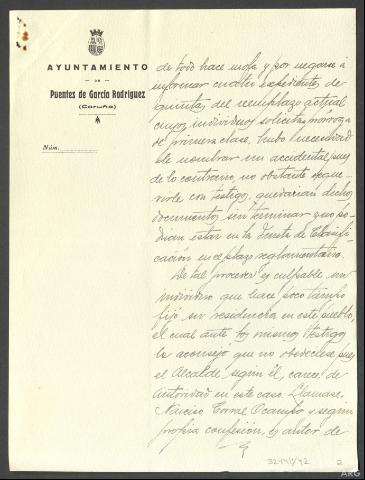 AYUNTAMIENTO
DE
Puentes de García Rodríguez
(Coruña)
Núm.
de todo hace mofa y por negarse á
informar cuatro expedientes de
quinta, del remplazo actual
cuyos individuos solicitan prórroga
de primera clase, hubo necesidad
de nombrar un accidental pues
de lo contrario, no obstante reque-
rirle con testigos, quedarían dichos
documentos sin terminar y no po-
dían estar en la Junta de Clasifi-
cación en el plazo reglamentario.
De tal proceder es culpable un
individuo que hace poco tiempo
fijó su residencia en este pueblo,
el cual ante los mismos testigos
la aconsejó que no obedeciese pues
el Alcalde, según él, carece de
autoridad en este caso. Llámase
Narciso Ocampo y según
propia confesión, es autor de
2
ARG